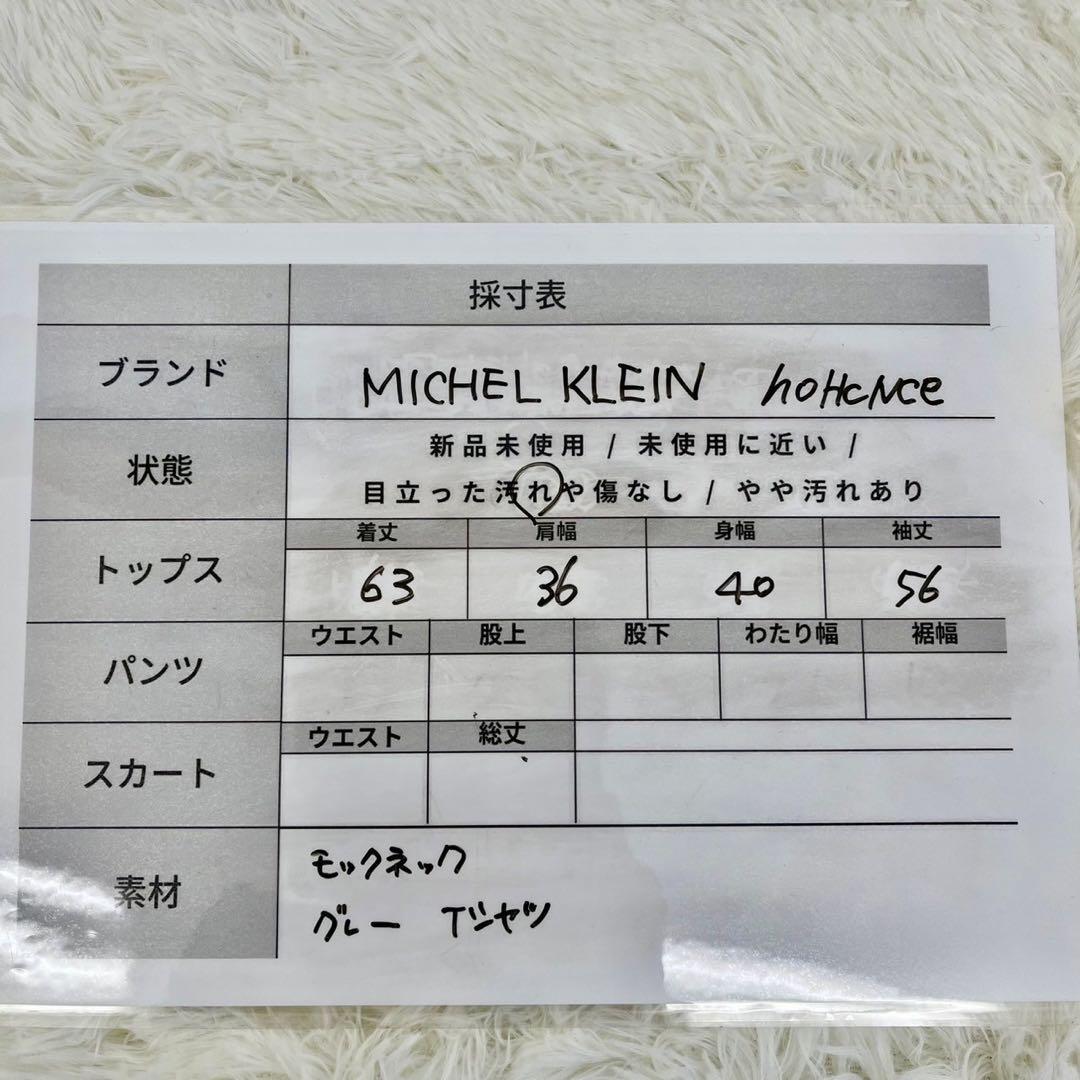 採寸表
ブランド MICHEL KLEIN hoHcNce
状態 新品未使用 / 未使用に近い /
目立った汚れや傷なし / やや汚れあり
着丈 肩幅 身幅 袖丈
トップス 63 36 40 56
ウエスト 股上 股下 わたり幅 裾幅
パンツ
ウエスト 総丈
スカート
素材 モックネック
グレー Tシャツ